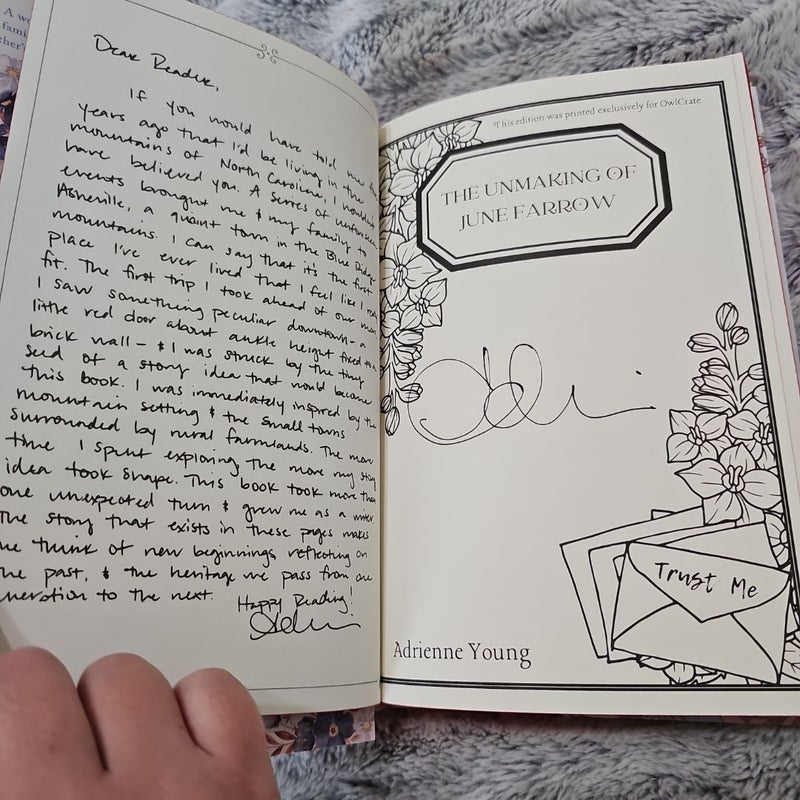 Dear Reader,
If you would have told me
years ago that I'd be living in the
mountains of North Carolina, I wouldn't
have believed you. A series of unforseen
events brought me & my family to
Asheville, a quaint town in the Blue Ridge
mountains. I can say that it's the first
place I've ever lived that I feel like I really
fit. The first trip I took ahead of our move
I saw something peculiar downtown - a
little red door about ankle height fixed to a
brick wall - & I was struck by the tiny
seed of a story idea that would become
this book. I was immediately inspired by the
mountain setting & the small towns
surrounded by rural farmlands. The more
time I spent exploring the more my story
idea took shape. This book took more than
one unexpected turn & grew me as a writer.
The story that exists in these pages makes
me think of new beginnings, reflecting on
the past, & the heritage we pass from one
to the next.
Happy Reading!
This edition was printed exclusively for OwlCrate
THE UNMAKING OF
JUNE FARROW
Trust Me
Adrienne Young